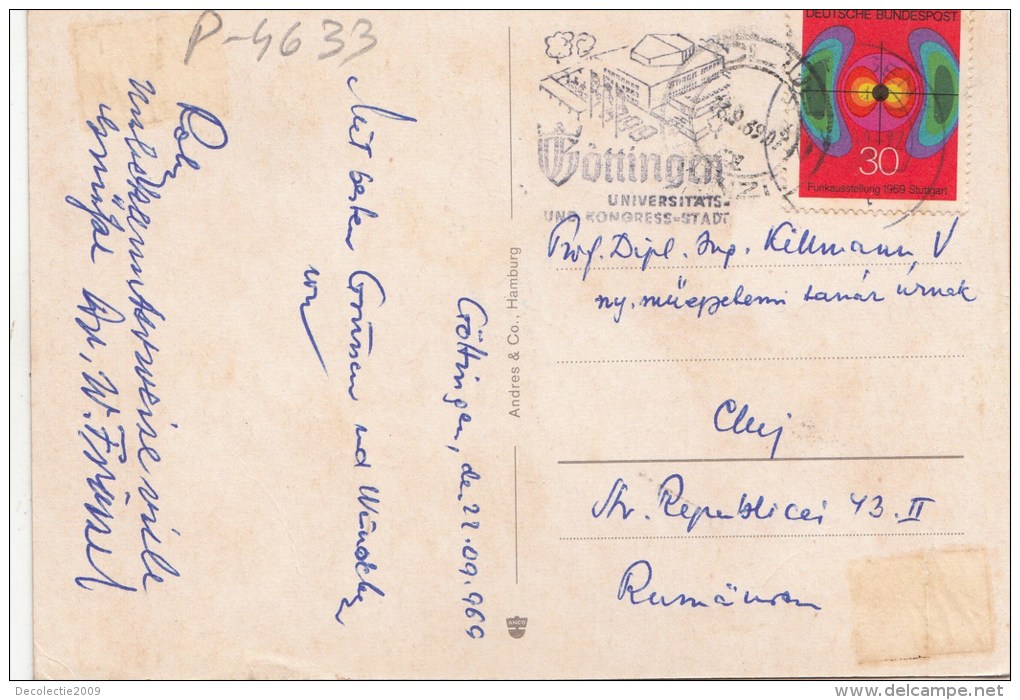 P-4633
DEUTSCHE BUNDESPOST
30
Funkausstellung 1969 Stuttgart
Göttingen
UNIVERSITÄTS-
UND KONGRESS-STADT
Göttingen, den 22.09.1969
Mit besten Grüssen und Wünschen
von
Prof. Dipl. Ing. Killmann, V
ny. műegyetemi tanár úrnak
Cluj
Str. Republicei 43. II
Rumänien
Andres & Co., Hamburg
ANCO
Decolectie2009
www.delcampe.net